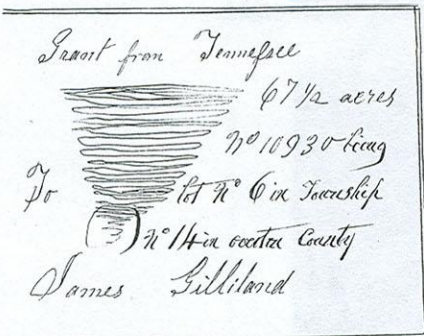 Grant from Tennessee
67 1/2 acres
No 10930 being
To lot No 6 in Township
No 14 in overton County
James Gilliland